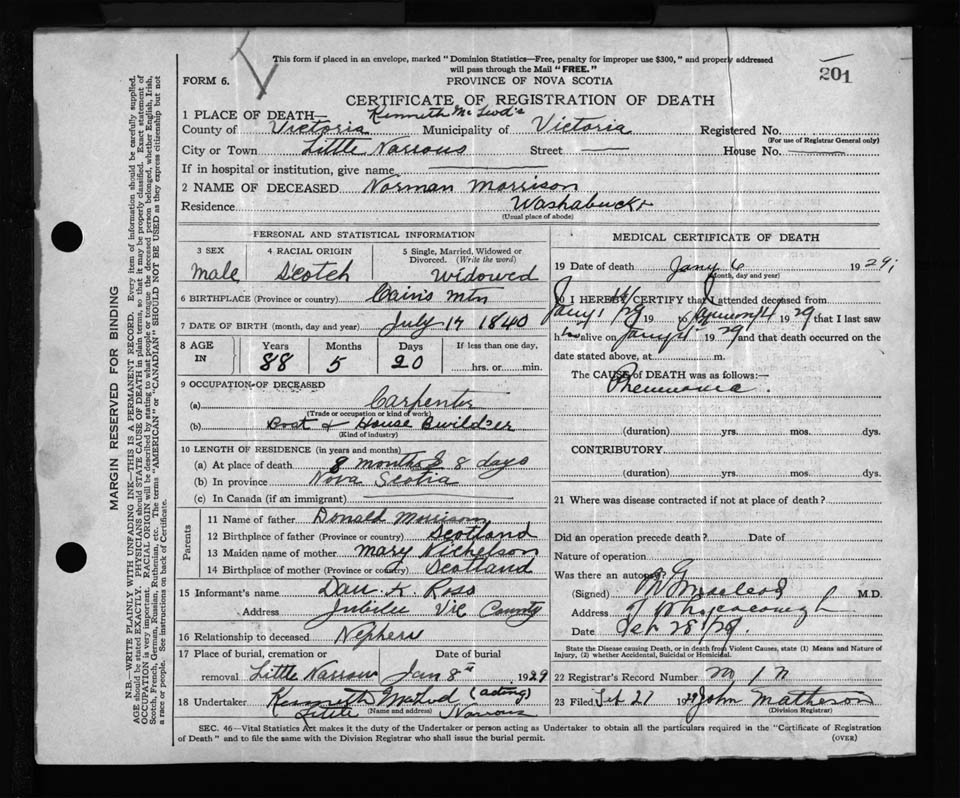 This form if placed in an envelope, marked "Dominion Statistics—Free, penalty for improper use $300," and properly addressed
will pass through the Mail "FREE."
201
FORM 6.
PROVINCE OF NOVA SCOTIA
CERTIFICATE OF REGISTRATION OF DEATH
1 PLACE OF DEATH— Kenneth
County of Victoria Municipality of Victoria Registered No.
(For use of Registrar General only)
City or Town Little Narrows Street — House No. —
If in hospital or institution, give name —
2 NAME OF DECEASED Norman Morrison
Residence Washabuckt
(Usual place of abode)
PERSONAL AND STATISTICAL INFORMATION
3 SEX 4 RACIAL ORIGIN 5 Single, Married, Widowed or
Divorced. (Write the word)
male Scotch Widowed
6 BIRTHPLACE (Province or country) Cain's Mtn
7 DATE OF BIRTH (month, day and year) July 17 1840
8 AGE IN Years Months Days If less than one day,
88 5 20 hrs. or min.
9 OCCUPATION OF DECEASED
(a) Carpenter
(Trade or occupation or kind of work)
(b) Boat & House Builder
(Kind of industry)
10 LENGTH OF RESIDENCE (in years and months)
(a) At place of death 8 months & 8 days
(b) In province Nova Scotia
(c) In Canada (if an immigrant)
Parents
11 Name of father Donald Morrison
12 Birthplace of father (Province or country) Scotland
13 Maiden name of mother Mary Nichelson
14 Birthplace of mother (Province or country) Scotland
15 Informant's name Dan K. Ross
Address Jubilee Vic County
16 Relationship to deceased Nephew
17 Place of burial, cremation or Date of burial
removal Little Narrows Jan 8th 1929
18 Undertaker Kenneth (acting)
(Name and address)
Little Narrows
MEDICAL CERTIFICATE OF DEATH
19 Date of death Jany 6 1929
(Month, day and year)
20 I HEREBY CERTIFY that I attended deceased from
Jany 1 / 29 19 to 1929 that I last saw
h alive on Jany 4 1929 and that death occurred on the
date stated above, at m.
The CAUSE of DEATH was as follows:—
Pneumonia.
(duration) yrs. mos. dys.
CONTRIBUTORY
(duration) yrs. mos. dys.
21 Where was disease contracted if not at place of death?
Did an operation precede death? Date of
Nature of operation
Was there an autopsy?
(Signed) MacLeod M.D.
Address Whycocomagh
Date Feb 28/29.
State the Disease causing Death, or in death from Violent Causes, state (1) Means and Nature of
Injury, (2) whether Accidental, Suicidal or Homicidal.
22 Registrar's Record Number
23 Filed Feb 27 1929 John Matheson
(Division Registrar)
SEC. 46—Vital Statistics Act makes it the duty of the Undertaker or person acting as Undertaker to obtain all the particulars required in the "Certificate of Registration
of Death" and to file the same with the Division Registrar who shall issue the burial permit.
(OVER)
MARGIN RESERVED FOR BINDING
N.B.—WRITE PLAINLY WITH UNFADING INK—THIS IS A PERMANENT RECORD. Every item of information should be carefully supplied.
AGE should be stated EXACTLY. PHYSICIANS should STATE CAUSE OF DEATH in plain terms, so that it may be properly classified. Exact statement of
OCCUPATION is very important. RACIAL ORIGIN will be described by stating to what people or tongue the deceased person belonged, whether English, Irish,
Scotch, French, German, Russian, Ruthenian, etc. The terms "AMERICAN" or "CANADIAN" SHOULD NOT BE USED as they express citizenship but not
a race or people. See instructions on back of Certificate.